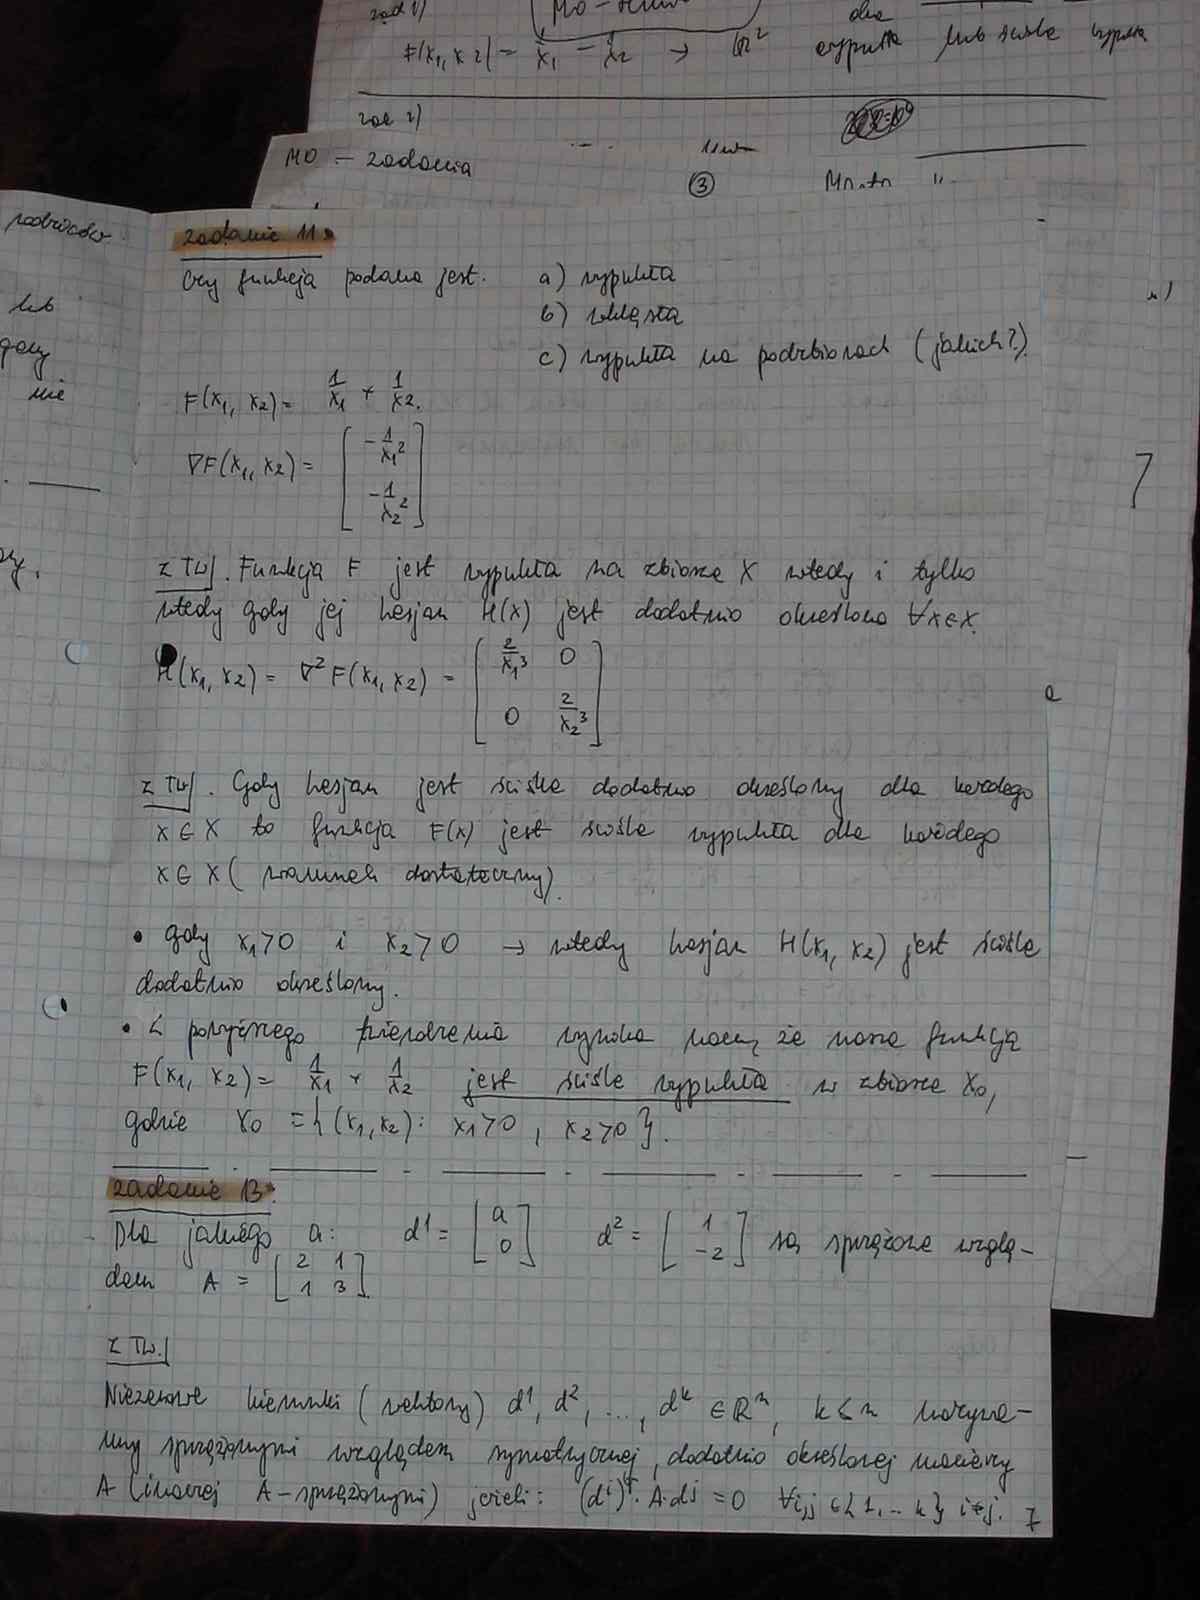 zad 1)
F(x₁, x₂) = 1/x₁ - 1/x₂ → ℝ² wypukła lub ściśle wypukła
zad 2)
MO - zadania
③
lub
nie
zadanie 11.
Czy funkcja podana jest: a) wypukła
b) wklęsła
c) wypukła na podzbiorach (jakich?)
F(x₁, x₂) = 1/x₁ + 1/x₂.
∇F(x₁, x₂) = [ -1/x₁² ; -1/x₂² ]
z TW/. Funkcja F jest wypukła na zbiorze X wtedy i tylko
wtedy gdy jej hesjan H(x) jest dodatnio określona ∀x∈X.
H(x₁, x₂) = ∇²F(x₁, x₂) = [ 2/x₁³ 0 ; 0 2/x₂³ ]
z TW/. Gdy hesjan jest ściśle dodatnio określony dla każdego
x ∈ X to funkcja F(x) jest ściśle wypukła dla każdego
x ∈ X (warunek dostateczny)
• gdy x₁>0 i x₂>0 → wtedy hesjan H(x₁, x₂) jest ściśle
dodatnio określony.
• Z powyższego twierdzenia wynika że nasza funkcja
F(x₁, x₂) = 1/x₁ + 1/x₂ jest ściśle wypukła w zbiorze X₀,
gdzie X₀ = {(x₁,x₂): x₁>0, x₂>0}.
zadanie 13.
Dla jakiego a: d¹ = [ a ; 0 ] d² = [ 1 ; -2 ] są sprzężone wzglę-
dem A = [ 2 1 ; 1 3 ]
z TW./
Niezerowe kierunki (wektory) d¹, d², ..., dᵏ ∈ ℝⁿ, k ≤ n nazywa-
my sprzężonymi względem symetrycznej, dodatnio określonej macierzy
A (inaczej A-sprzężonymi) jeżeli: (dⁱ)ᵀ · A · dʲ = 0 ∀i,j ∈ {1,...k} i≠j.
7